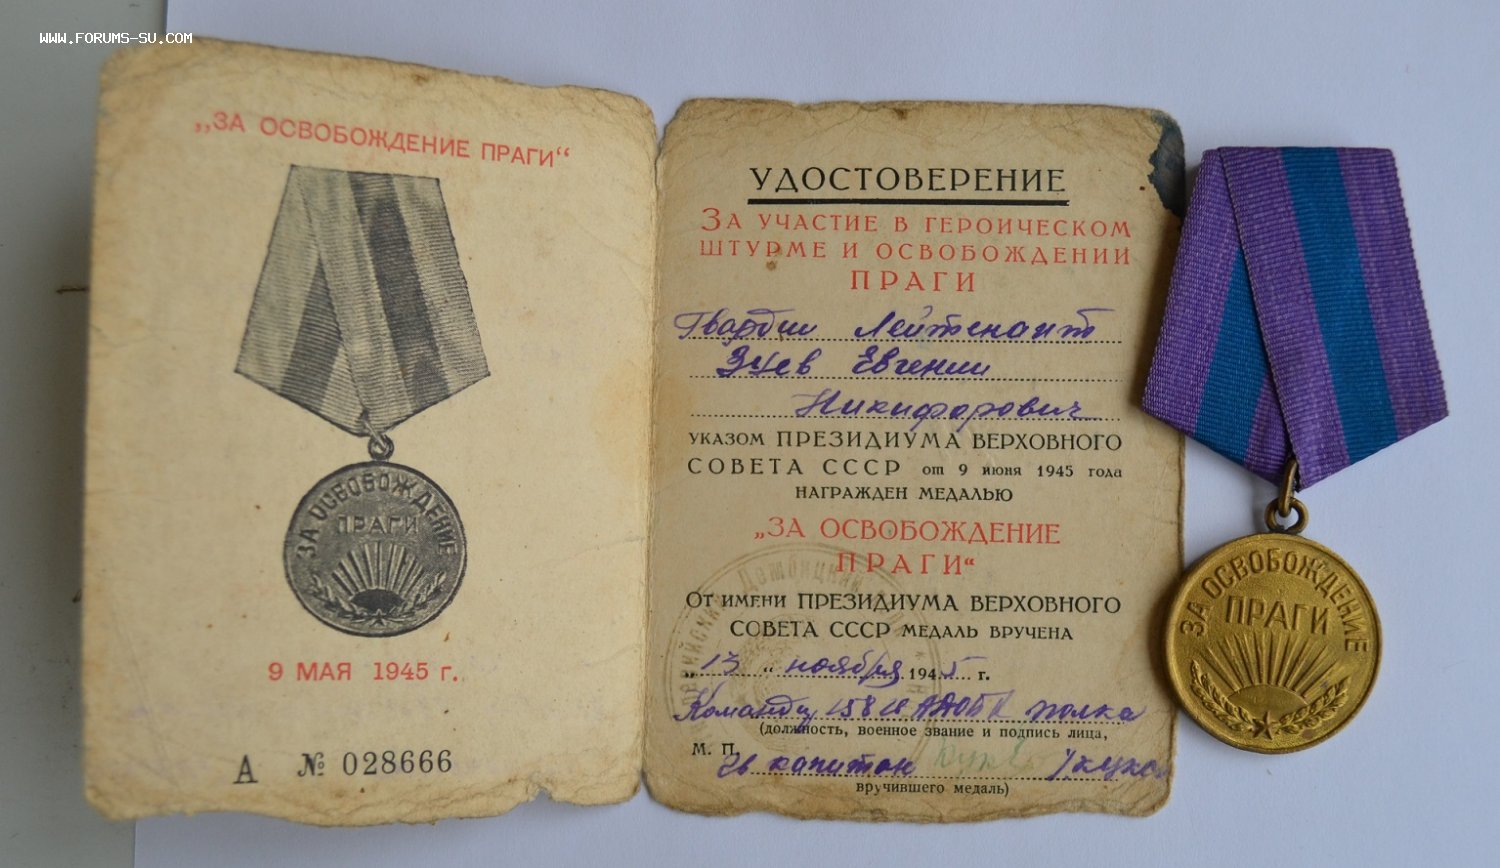 WWW.FORUMS-SU.COM
„ЗА ОСВОБОЖДЕНИЕ ПРАГИ“
ЗА ОСВОБОЖДЕНИЕ
ПРАГИ
9 МАЯ 1945 г.
А № 028666
УДОСТОВЕРЕНИЕ
ЗА УЧАСТИЕ В ГЕРОИЧЕСКОМ
ШТУРМЕ И ОСВОБОЖДЕНИИ
ПРАГИ
Гвардии Лейтенант
Зуев Евгений
Никифорович
УКАЗОМ ПРЕЗИДИУМА ВЕРХОВНОГО
СОВЕТА СССР от 9 июня 1945 года
НАГРАЖДЕН МЕДАЛЬЮ
„ЗА ОСВОБОЖДЕНИЕ
ПРАГИ“
ОТ ИМЕНИ ПРЕЗИДИУМА ВЕРХОВНОГО
СОВЕТА СССР МЕДАЛЬ ВРУЧЕНА
„13 “ ноября 1945 г.
158 полка
(должность, военное звание и подпись лица,
М. П.
Гв капитан
вручившего медаль)
ЗА ОСВОБОЖДЕНИЕ
ПРАГИ